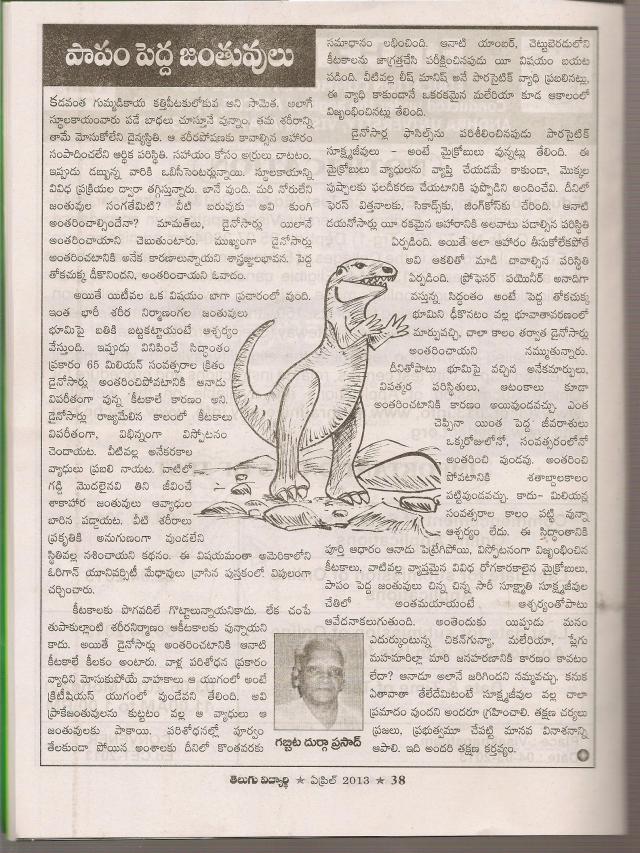 పాపం పెద్ద జంతువులు
కడవంత గుమ్మడికాయ కత్తిపీటకులోకువ అని సామెత. అలాగే
స్థూలకాయంవారు పడే బాధలు చూస్తూనే వున్నాం, తమ శరీరాన్ని
తామే మోసుకోలేని దైన్యస్థితి. ఆ శరీరపోషణకు కావాల్సిన ఆహారం
సంపాదించలేని ఆర్థిక పరిస్థితి. సహాయం కోసం అర్రులు చాటటం.
ఇప్పుడు డబ్బున్న వారికి ఒబిసీసెంటర్లున్నాయి. స్థూలకాయాన్ని
వివిధ ప్రక్రియల ద్వారా తగ్గిస్తున్నారు. బానే వుంది. మరి నోరులేని
జంతువుల సంగతేమిటి? వీటి బరువుకు అవి కుంగి
అంతరించాల్సిందేనా? మామత్‌లు, డైనోసార్లు యిలానే
అంతరించాయని చెబుతుంటారు. ముఖ్యంగా డైనోసార్లు
అంతరించటానికి అనేక కారణాలున్నాయని శాస్త్రజ్ఞులభావన. పెద్ద
తోకచుక్క ఢీకొనిందని, అంతరించాయని ఓవాదం.
అయితే యిటీవల ఒక విషయం బాగా ప్రచారంలో వుంది.
ఇంత భారీ శరీర నిర్మాణంగల జంతువులు
భూమిపై బతికి బట్టకట్టాయంటే ఆశ్చర్యం
వేస్తుంది. ఇప్పుడు వినిపించే సిద్ధాంతం
ప్రకారం 65 మిలియన్ సంవత్సరాల క్రితం
డైనోసార్లు అంతరించిపోవటానికి ఆనాడు
విపరీతంగా వున్న కీటకాలే కారణం అని.
డైనోసార్లు రాజ్యమేలిన కాలంలో కీటకాలు
విపరీతంగా, విభిన్నంగా విస్ఫోటనం
చెందాయట. వీటివల్ల అనేకరకాల
వ్యాధులు ప్రబలి నాయట. వాటిలో
గడ్డి మొదలైనవి తిని జీవించే
శాకాహార జంతువులు ఆవ్యాధుల
బారిన పడ్డాయట. వీటి శరీరాలు
ప్రకృతికి అనుగుణంగా వుండలేని
స్థితివల్ల నశించాయని కథనం. ఈ విషయమంతా అమెరికాలోని
ఓరిగాన్ యూనివర్శిటీ మేధావులు వ్రాసిన పుస్తకంలో విపులంగా
చర్చించారు.
కీటకాలకు పొగవదిలే గొట్టాలున్నాయనికాదు. లేక చంపే
తుపాకుల్లాంటి శరీరనిర్మాణం ఆకీటకాలకు వున్నాయని
కాదు. అయితే డైనోసార్లు అంతరించటానికి ఆనాటి
కీటకాలే కీలకం అంటారు. వాళ్ల పరిశోధన ప్రకారం
వ్యాధిని మోసుకుపోయే వాహకాలు ఆ యుగంలో అంటే
క్రిటేషియస్ యుగంలో వుండేవని తేలింది. అవి
ప్రాకేజంతువులను కుట్టటం వల్ల ఆ వ్యాధులు ఆ
జంతువులకు పాకాయి. పరిశోధనల్లో పూర్వం
తేలకుండా పోయిన అంశాలకు దీనిలో కొంతవరకు
సమాధానం లభించింది. ఆనాటి యాంబర్, చెట్టుబెరడులోని
కీటకాలను జాగ్రత్తచేసి పరీక్షించినపుడు యీ విషయం బయట
పడింది. వీటివల్ల లీష్ మానిష్ అనే పారసైటిక్ వ్యాధి ప్రబలినట్లు,
ఈ వ్యాధి కాకుండానే ఒకరకమైన మలేరియా కూడ ఆకాలంలో
విజృంభించినట్లు తేలింది.
డైనోసార్ల ఫాసిల్స్‌ను పరిశీలించినపుడు పారసైటిక్
సూక్ష్మజీవులు - అంటే మైక్రోబులు వున్నట్లు తేలింది. ఈ
మైక్రోబులు వ్యాధులను వ్యాప్తి చేయడమే కాకుండా, మొక్కల
పుష్పాలకు ఫలదీకరణ చేయుటానికి పుప్పొడిని అందించేవి. దీనిలో
ఫెరన్ విత్తనాలకు, సికాడ్స్‌కు, జింగ్‌కోస్‌కు చేరింది. ఆనాటి
దయనోసార్లు యీ రకమైన ఆహారానికి అలవాటు పడాల్సిన పరిస్థితి
ఏర్పడింది. అయితే అలా ఆహారం తీసుకోలేకపోతే
అవి ఆకలితో మాడి చావాల్సిన పరిస్థితి
ఏర్పడింది. ప్రోఫెసర్ పయొనీర్ అనాదిగా
వస్తున్న సిద్ధంతం అంటే పెద్ద తోకచుక్క
భూమిని ఢీకొనటం వల్ల భూవాతావరణంలో
మార్పువచ్చి, చాలా కాలం తర్వాత డైనోసార్లు
అంతరించాయని నమ్ముతున్నారు.
దీనితోపాటు భూమిపై వచ్చిన అనేకమార్పులు,
విపత్కర పరిస్థితులు, ఆటంకాలు కూడా
అంతరించటానికి కారణం అయివుండవచ్చు. ఎంత
చెప్పినా యింత పెద్ద జీవరాశులు
ఒక్కరోజులోనో, సంవత్సరంలోనో
అంతరించి వుండవు. అంతరించి
పోవటానికి శతాబ్దాలకాలం
పట్టివుండవచ్చు. కాదు- మిలియన్ల
సంవత్సరాల కాలం పట్టి వున్నా
ఆశ్చర్యం లేదు. ఈ సిద్ధాంతానికి
పూర్తి ఆధారం ఆనాడు పెట్రేగిపోయి, విస్ఫోటనంగా విజృంభించిన
కీటకాలు, వాటివల్ల వ్యాప్తమైన వివిధ రోగకారకాలైన మైక్రోబులు,
పాపం పెద్ద జంతువులు చిన్న చిన్న సారీ సూక్ష్మాతి సూక్ష్మజీవుల
చేతిలో అంతమయాయంటే ఆశ్చర్యంతోపాటు
ఆవేదనాకలుగుతుంది. అంతెందుకు యిప్పుడు మనం
ఎదుర్కుంటున్న చికన్‌గున్యా, మలేరియా, ప్లేగు
మహమారిల్లా మారి జనహరణానికి కారణం కావటం
లేదా? ఆనాడూ అలానే జరిగిందని నమ్మవచ్చు. కనుక
ఏతావాతా తేలేదేమిటంటే సూక్ష్మజీవుల వల్ల చాలా
ప్రమాదం వుందని అందరూ గ్రహించాలి. తక్షణ చర్యలు
ప్రజలు, ప్రభుత్వమూ చేపట్టి మానవ వినాశనాన్ని
ఆపాలి. ఇది అందరి తక్షణ కర్తవ్యం.
గబ్బిట దుర్గా ప్రసాద్
తెలుగు విద్యార్థి ★ ఏప్రిల్ 2013 ★ 38